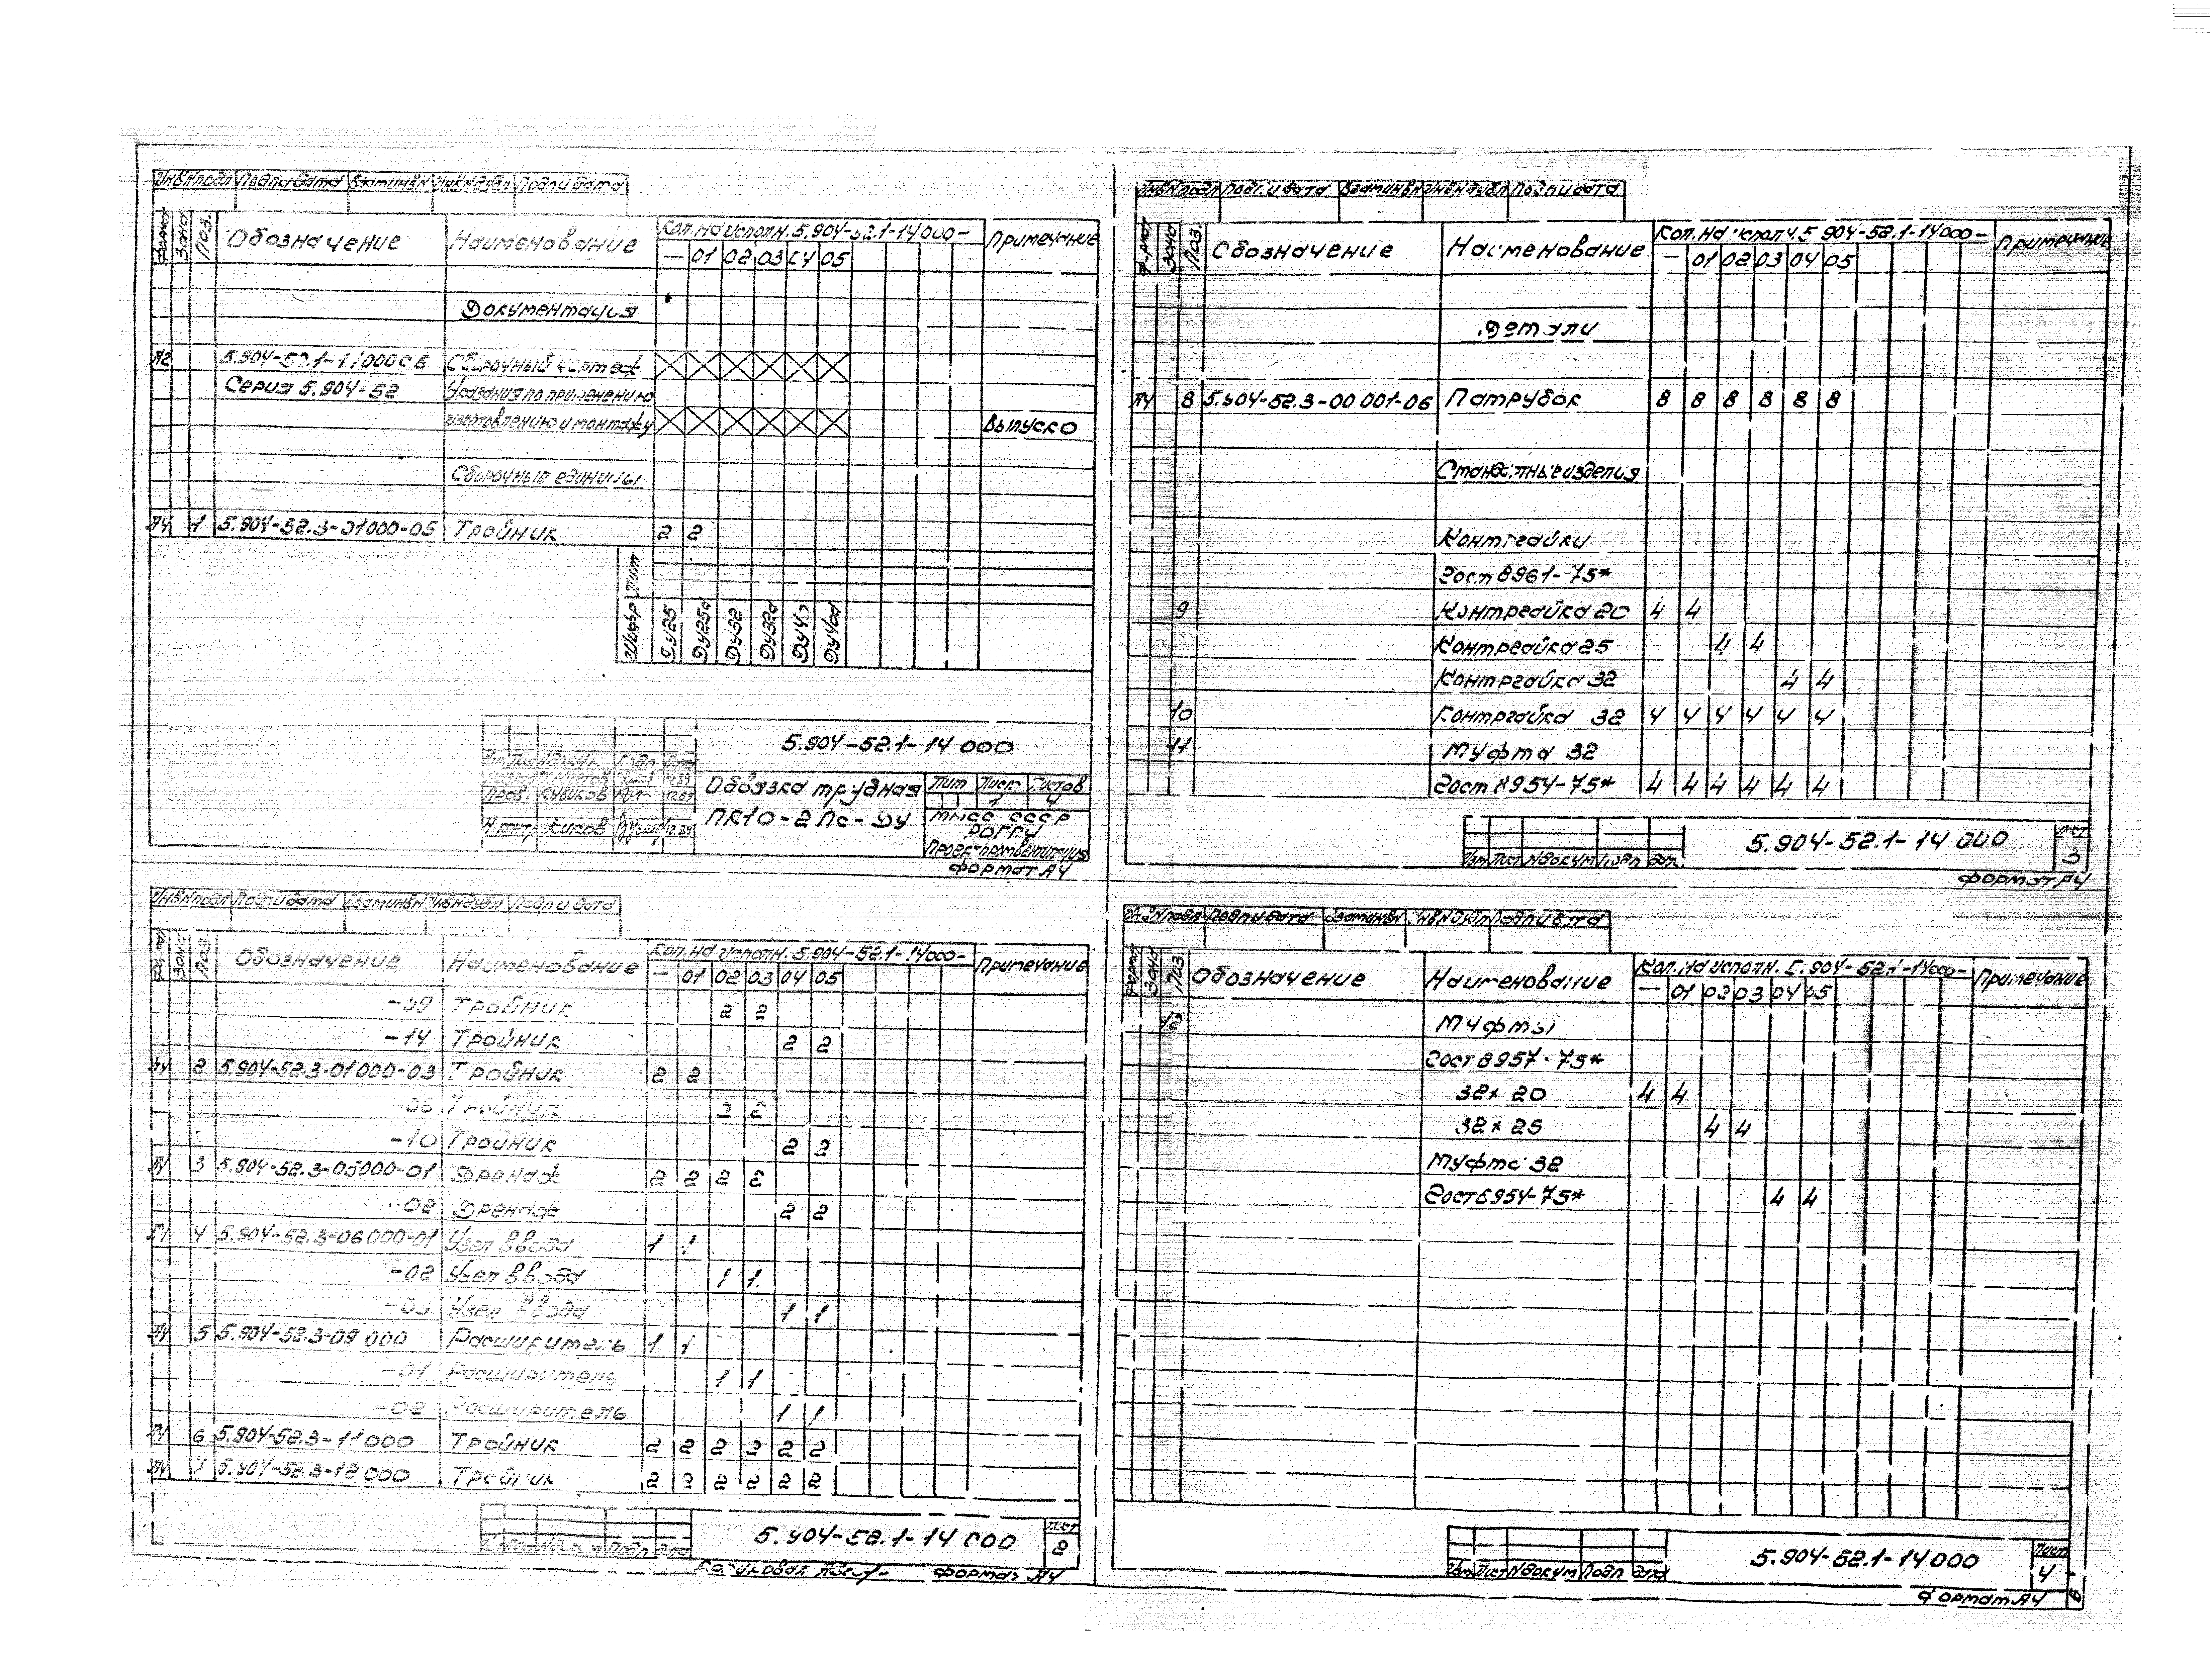 Инв№подл Подп и дата Взам инв№ Инв№дубл Подп и дата
Формат Зона Поз. Обозначение Наименование Кол. на исполн. 5.904-52.1-14000- Примечание
— 01 02 03 04 05
Документация
А2 5.904-52.1-14000СБ Сборочный чертеж
Серия 5.904-52 Указания по применению
изготовлению и монтажу Выпуск 0
Сборочные единицы
А4 1 5.904-52.3-01000-05 Тройник 2 2
Шифр Лит
Ду25 Ду25а Ду32 Ду32а Ду40 Ду40а
5.904-52.1-14 000
Обвязка трубная
ПК10-2 Пс-Ду
Лит Лист Листов
1 4
ММСС СССР
Проектпромвентиляция
Н.контр
Формат А4
Инв№подл Подп и дата Взам инв№ Инв№дубл Подп и дата
Формат Зона Поз. Обозначение Наименование Кол. на исполн. 5.904-52.1-14000- Примечание
— 01 02 03 04 05
-09 Тройник 2 2
-14 Тройник 2 2
А4 2 5.904-52.3-01000-03 Тройник 2 2
-06 Тройник 2 2
-10 Тройник 2 2
А4 3 5.904-52.3-05000-01 Дренаж 2 2 2 2
-02 Дренаж 2 2
А4 4 5.904-52.3-06000-01 Узел ввода 1 1
-02 Узел ввода 1 1
-03 Узел ввода 1 1
А4 5 5.904-52.3-09 000 Расширитель 1 1
-01 Расширитель 1 1
-02 Расширитель 1 1
А4 6 5.904-52.3-11000 Тройник 2 2 2 2 2 2
А4 7 5.904-52.3-12000 Тройник 2 2 2 2 2 2
5.904-52.1-14 000 Лист
2
Копировал Формат А4
Инв№подл Подп и дата Взам инв№ Инв№дубл Подп и дата
Формат Зона Поз. Обозначение Наименование Кол. на исполн. 5.904-52.1-14000- Примечание
— 01 02 03 04 05
Детали
А4 8 5.904-52.3-00 001-06 Патрубок 8 8 8 8 8 8
Стандартные изделия
Контргайки
Гост 8961-75*
9 Контргайка 20 4 4
Контргайка 25 4 4
Контргайка 32 4 4
10 Контргайка 32 4 4 4 4 4 4
11 Муфта 32
Гост 8954-75* 4 4 4 4 4 4
5.904-52.1-14 000 Лист
Изм Лист №докум Подп Дата 3
Формат А4
Инв№подл Подп и дата Взам инв№ Инв№дубл Подп и дата
Формат Зона Поз Обозначение Наименование Кол. на исполн. 5.904-52.1-14000- Примечание
— 01 02 03 04 05
12 Муфты
Гост 8957-75*
32×20 4 4
32×25 4 4
Муфта 32
Гост 8954-75* 4 4
5.904-52.1-14000 Лист
Изм Лист №докум Подп Дата 4
Формат А4